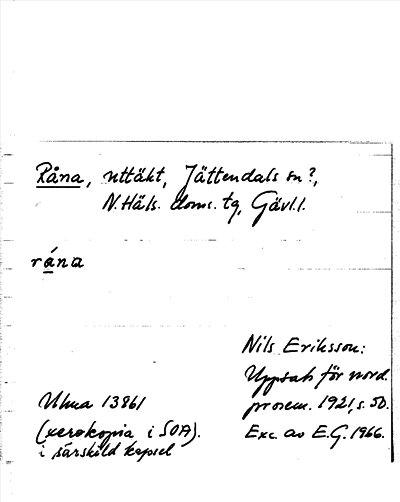 Råna, uttäkt, Jättendals sn?,
N. Häls. doms. tg, Gävl.l.
rána
Nils Eriksson:
Uppsats för nord.
prosem. 1921, s. 50.
Exc. av E.G. 1966.
Ulma 13861
(xerokopia i SOA).
i särskild kapsel